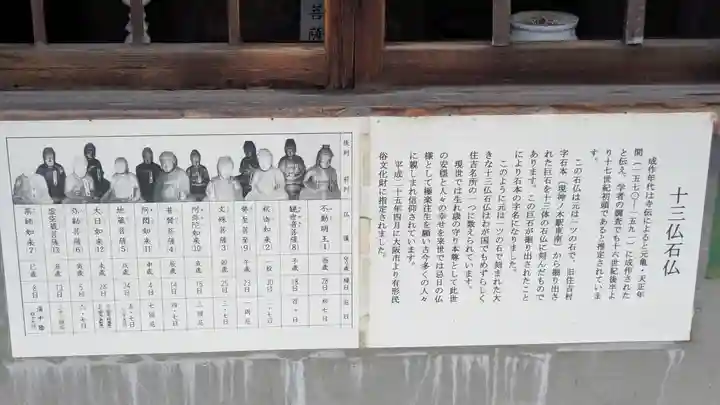 菩薩
十三仏石仏
成作年代は寺伝によると元亀・天正年
間(一五七〇〜一五九一)に成作された
と伝え、学者の調査でも十六世紀後半よ
り十七世紀初頭であると推定されていま
す。
この石仏は元は一ツの石で、旧住吉村
字石本(現沢ノ木駅東南)から掘り出さ
れた巨石を十三体の石仏に刻んだもので
あります。この巨石が掘り出されたこと
により石本の字名になりました。
このように元は一ツの石で刻まれた大
きな十三仏石仏はわが国でもめずらしく
住吉名所の一つに数えられています。
現世では生れ歳の守り本尊として此世
の安穏と人々の幸せを来世では忌日の仏
様として極楽往生を願い古今多くの人々
に親しまれ信仰されています。
平成二十五年四月に大阪市より有形民
俗文化財に指定されました。
後列 前列 仏様 守り歳 縁日 忌日
不動明王1 酉歳 28日 初七日
観世音菩薩8 子歳 18日 百ヶ日
釈迦如来2 一般 二七日
勢至菩薩9 午歳 23日 一周忌
文殊菩薩3 卯歳 25日 三七日
阿弥陀如来10 15日 三回忌
普賢菩薩4 四七日
阿閦如来11 七回忌
地蔵菩薩5 24日
大日如来12 28日
弥勒菩薩6 5日 六七日
虚空蔵菩薩13 13日
薬師如来7 巳歳 8日 満中陰